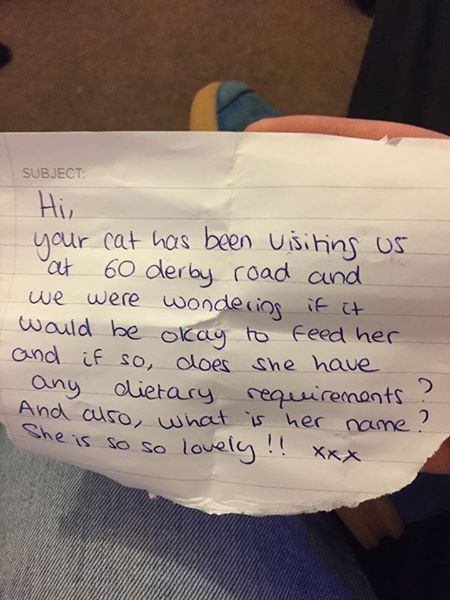 SUBJECT:
Hi,
your cat has been visiting us
at 60 derby road and
we were wondering if it
would be okay to feed her
and if so, does she have
any dietary requirements?
And also, what is her name?
She is so so lovely!! xxx